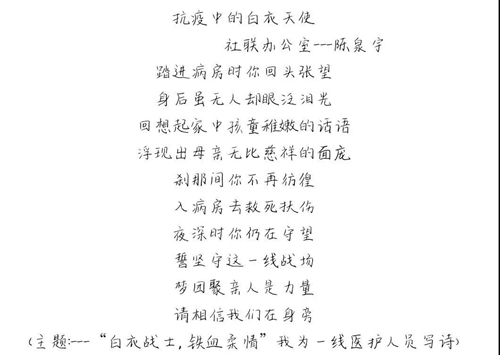 抗疫中的白衣天使
社联办公室---陈泉宇
踏进病房时你回头张望
身后虽无人却眼泛泪光
回想起家中孩童稚嫩的话语
浮现出母亲无比慈祥的面庞
刹那间你不再彷徨
入病房去救死扶伤
夜深时你仍在守望
誓坚守这一线战场
梦团聚亲人是力量
请相信我们在身旁
(主题:---“白衣战士,铁血柔情”我为一线医护人员写诗)